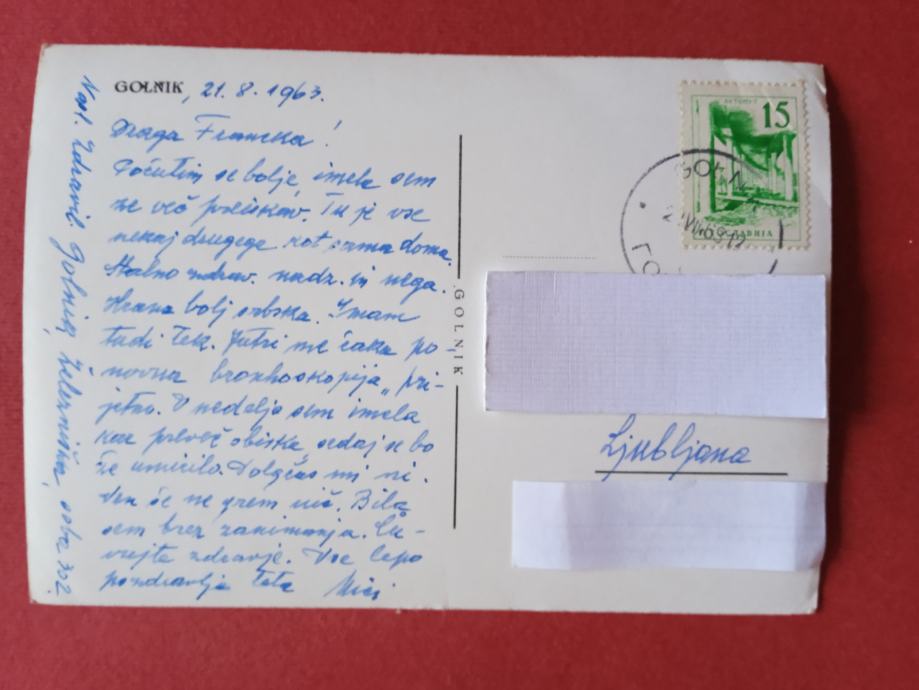 GOLNIK, 21.8.1963.
Draga Francka!
Počutim se bolje, imela sem
že več preiskav. Tu je vse
nekaj drugega kot sama doma.
Stalno zdrav. nadz. in nega.
Hrana bolj srbska. Imam
tudi tek. Jutri me čaka po-
novna bronhoskopija, pri-
jetno. V nedeljo sem imela
kar preveč obiska, sedaj se bo
že umirilo. Dolgčas mi ni.
Ven še ne grem nič. Bila
sem brez zanimanja. Ču-
vajte zdravje. Vse lepo
pozdravlja teta Mici
Nasl. Zdravil. Golnik, železniška, soba 302.
GOLNIK
15
ЈУГОСЛАВИЈА
Ljubljana